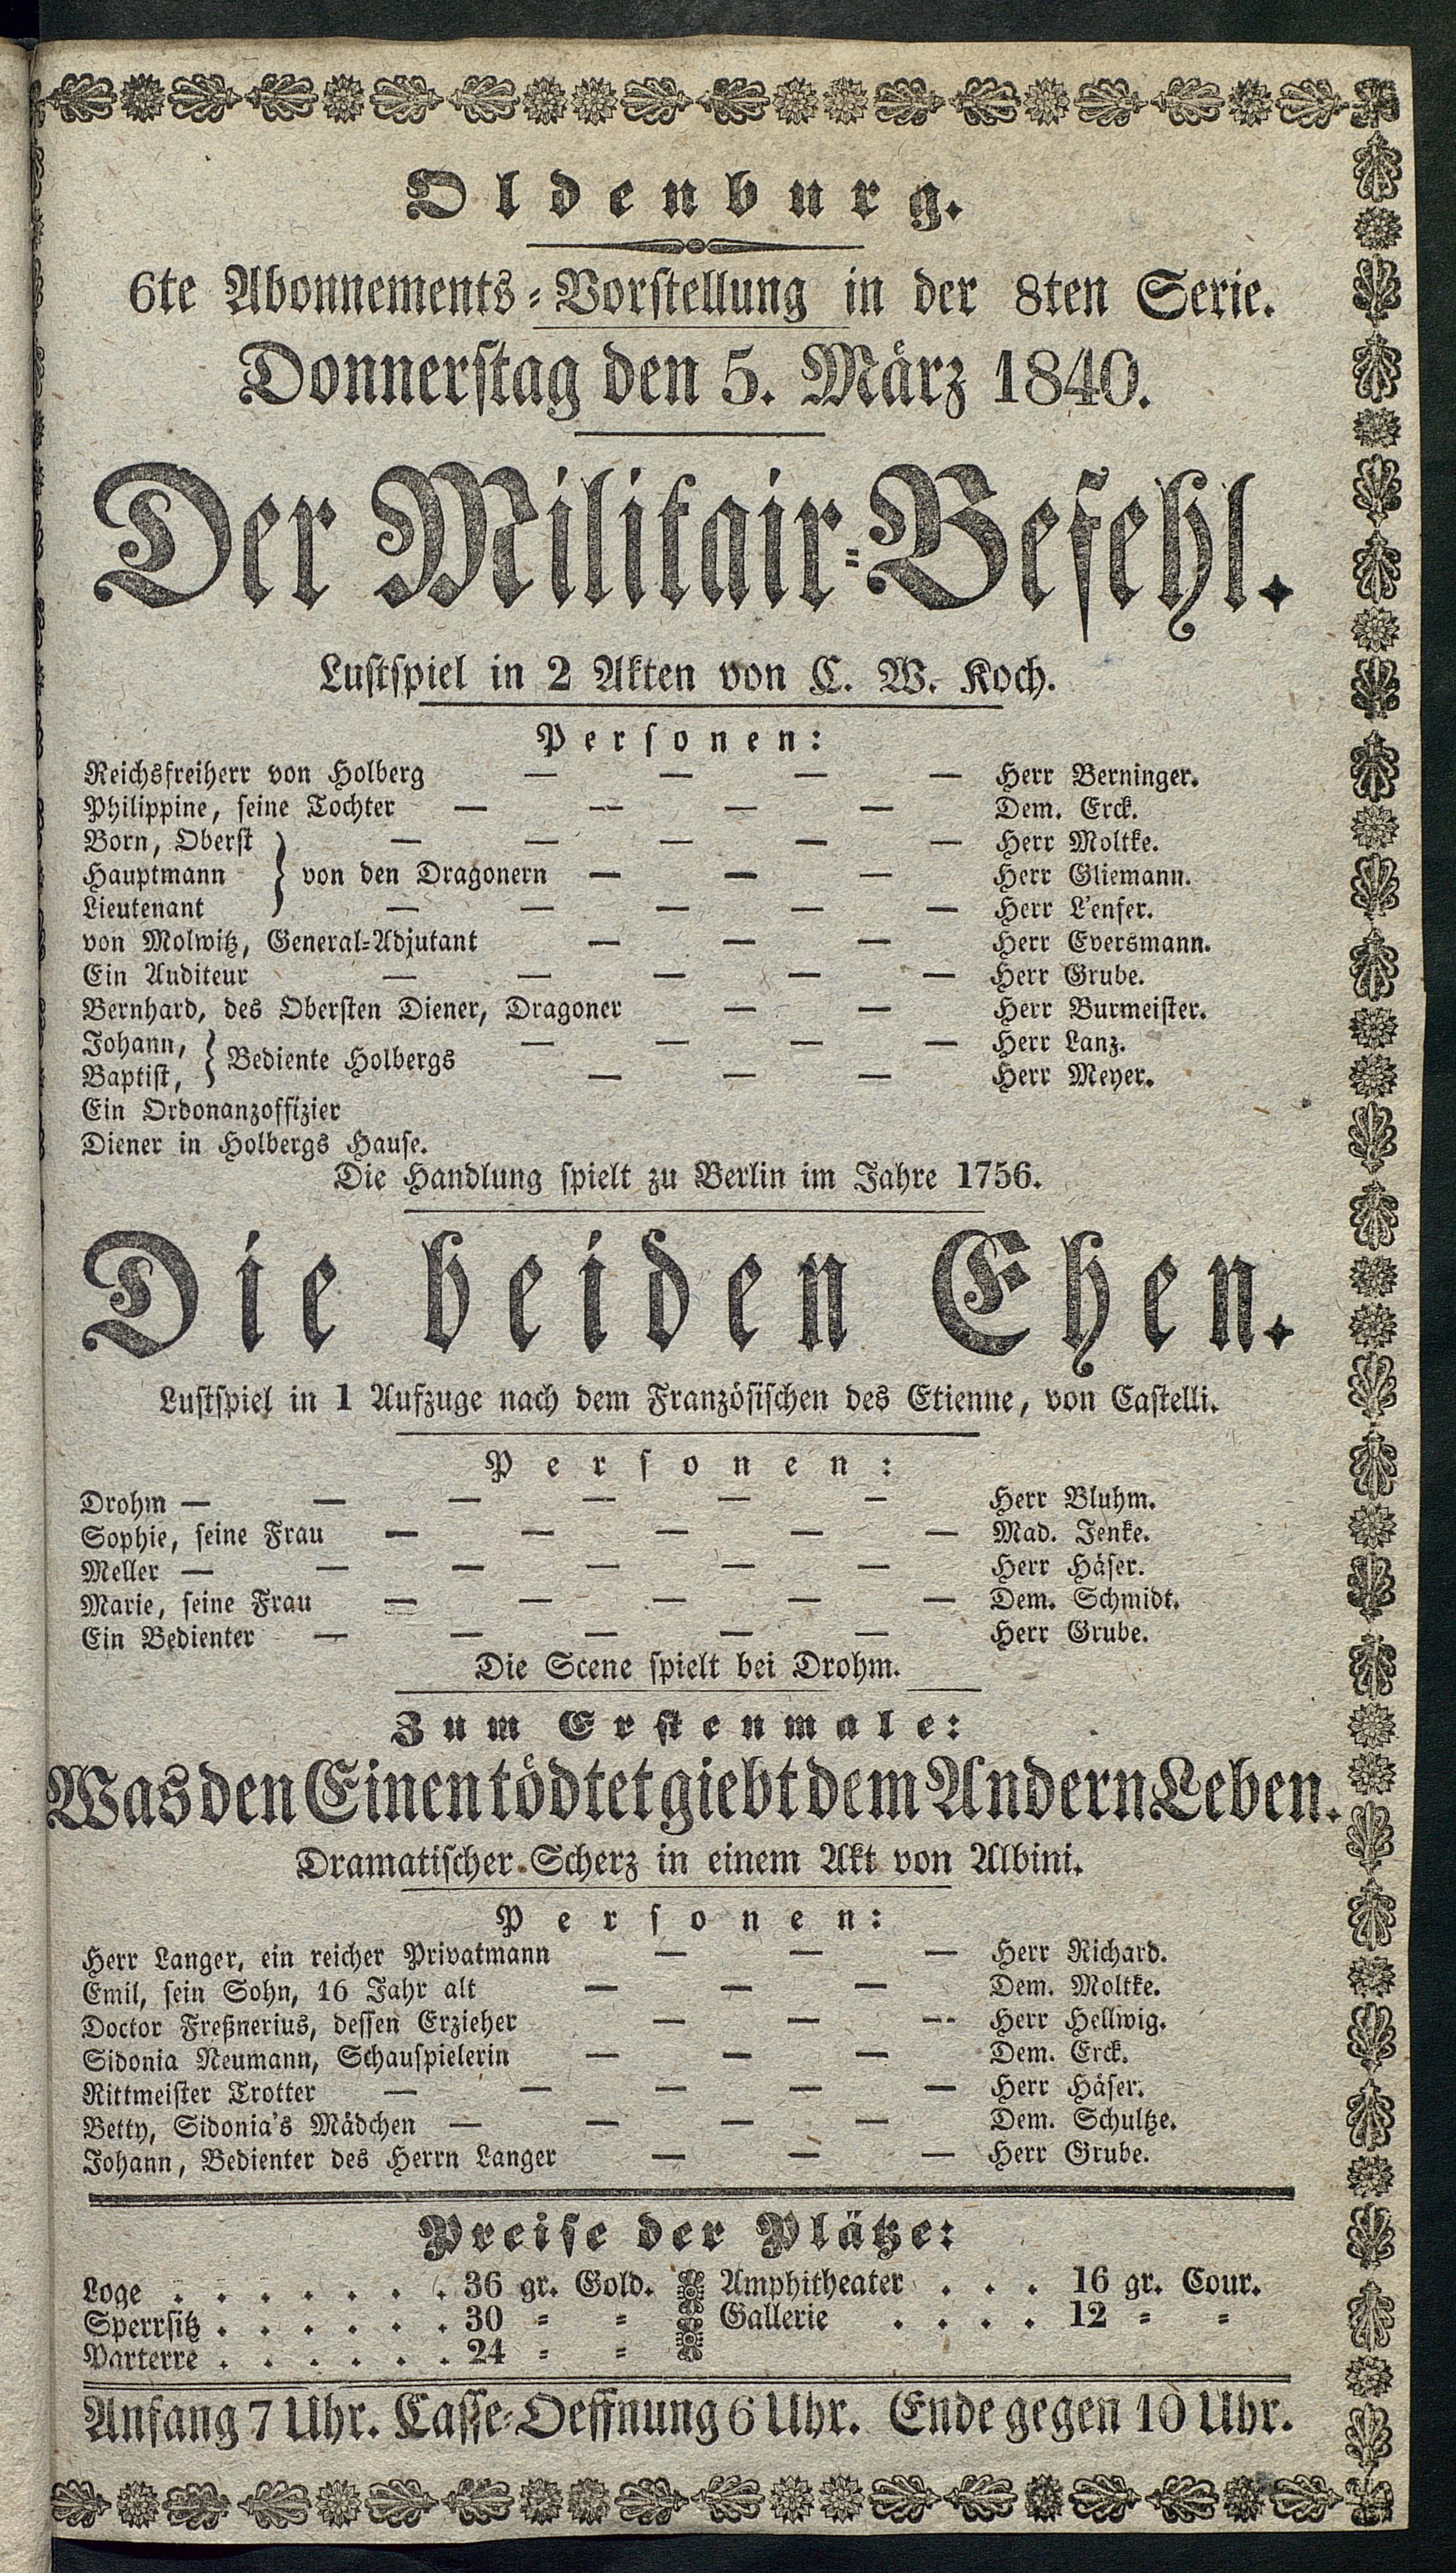 Oldenburg.
6te Abonnements-Vorstellung in der 8ten Serie.
Donnerstag den 5. März 1840.
Der Militair-Befehl.
Lustspiel in 2 Akten von C. W. Koch.
Personen:
Reichsfreiherr von Holberg — — — — Herr Berninger.
Philippine, seine Tochter — — — — Dem. Erck.
Born, Oberst — — — — — Herr Moltke.
Hauptmann } von den Dragonern — — — Herr Gliemann.
Lieutenant — — — — — Herr L'enfer.
von Molwitz, General-Adjutant — — — Herr Eversmann.
Ein Auditeur — — — — — Herr Grube.
Bernhard, des Obersten Diener, Dragoner — — Herr Burmeister.
Johann, } Bediente Holbergs — — — — Herr Lanz.
Baptist, — — — Herr Meyer.
Ein Ordonanzoffizier
Diener in Holbergs Hause.
Die Handlung spielt zu Berlin im Jahre 1756.
Die beiden Ehen.
Lustspiel in 1 Aufzuge nach dem Französischen des Etienne, von Castelli.
Personen:
Drohm — — — — — — Herr Bluhm.
Sophie, seine Frau — — — — — Mad. Jenke.
Meller — — — — — — Herr Häser.
Marie, seine Frau — — — — — Dem. Schmidt.
Ein Bedienter — — — — — Herr Grube.
Die Scene spielt bei Drohm.
Zum Erstenmale:
Was den Einen tödtet giebt dem Andern Leben.
Dramatischer Scherz in einem Akt von Albini.
Personen:
Herr Langer, ein reicher Privatmann — — — Herr Richard.
Emil, sein Sohn, 16 Jahr alt — — — Dem. Moltke.
Doctor Freßnerius, dessen Erzieher — — — Herr Hellwig.
Sidonia Neumann, Schauspielerin — — — Dem. Erck.
Rittmeister Trotter — — — — — Herr Häser.
Betty, Sidonia's Mädchen — — — — Dem. Schultze.
Johann, Bedienter des Herrn Langer — — — Herr Grube.
Preise der Plätze:
Loge . . . . . . . 36 gr. Gold. Amphitheater . . . 16 gr. Cour.
Sperrsitz . . . . . . 30 = = Gallerie . . . . 12 = =
Parterre . . . . . . 24 = =
Anfang 7 Uhr. Casse-Oeffnung 6 Uhr. Ende gegen 10 Uhr.